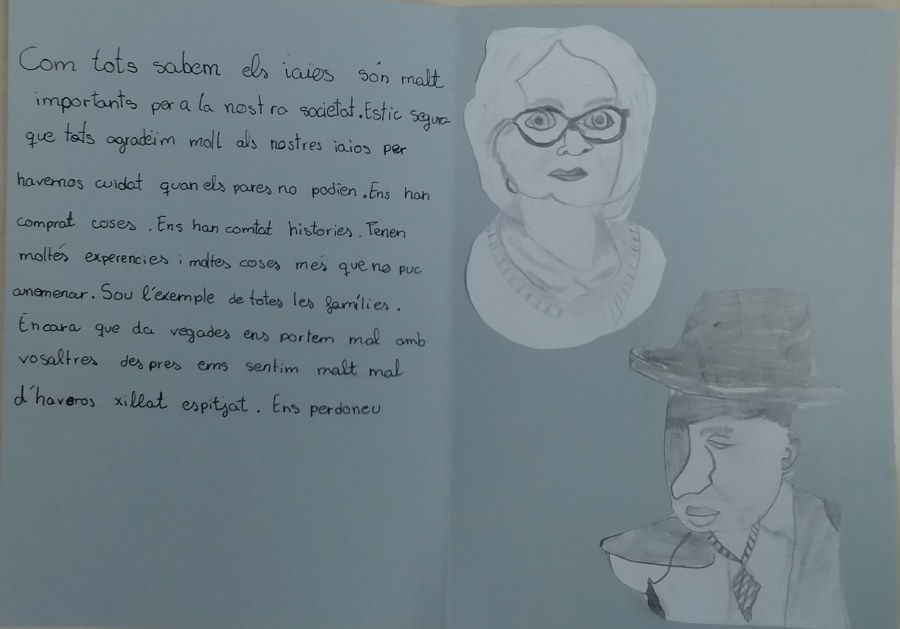 Com tots sabem els iaies són malt
importants per a la nostra societat. Estic segura
que tots agradéim molt als nostres iaios per
havernos cuidat quan els pares no podien. Ens han
comprat coses. Ens han comtat histories. Tenen
moltes experencies i moltes coses més que no puc
anomenar. Sou l'exemple de totes les famílies.
Encara que da vegades ens portem mal amb
vosaltres despres ems sentim malt mal
d'haveros xillat espitjat. Ens perdoneu